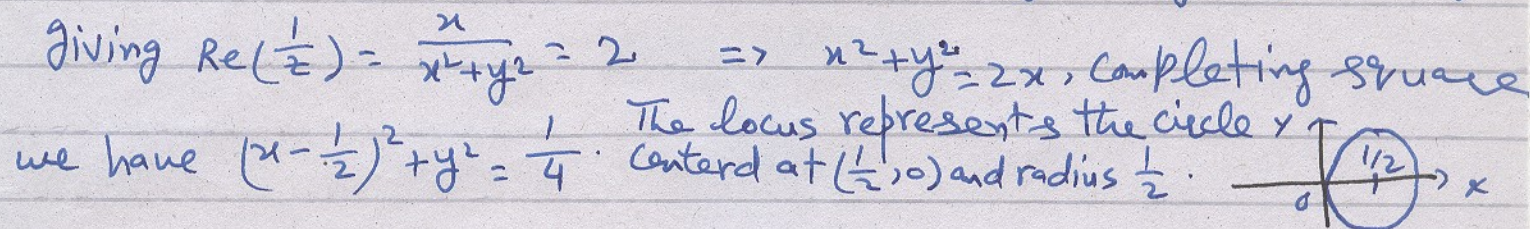 giving Re(1/z) = x/(x²+y²) = 2 => x²+y² = 2x, Completing square
we have (x - 1/2)² + y² = 1/4. The locus represents the circle
centerd at (1/2, 0) and radius 1/2.
Y
1/2
0
X